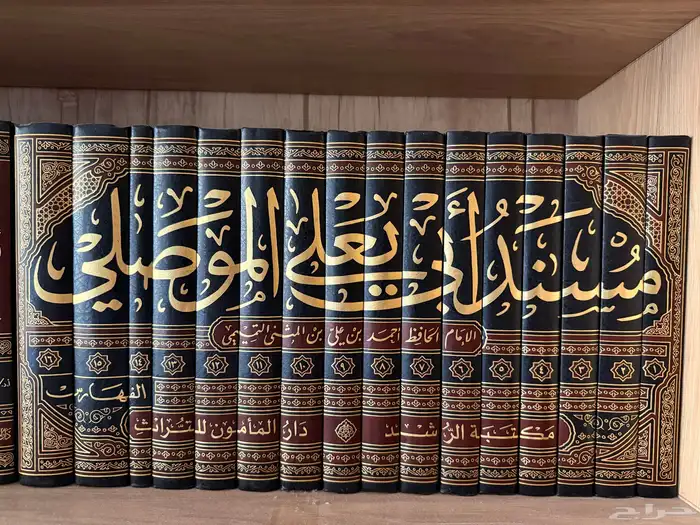 مُسْنَد أَبي يَعْلى المَوصَلي
الإمام الحافظ أحمد بن علي بن المثنى التميمي
١ ٢ ٣ ٤ ٥ ٦ ٧ ٨ ٩ ١٠ ١١ ١٢ ١٣ ١٤ ١٥ ١٦
الفهارس
مكتبة الرشد دار المأمون للتراث
حراج